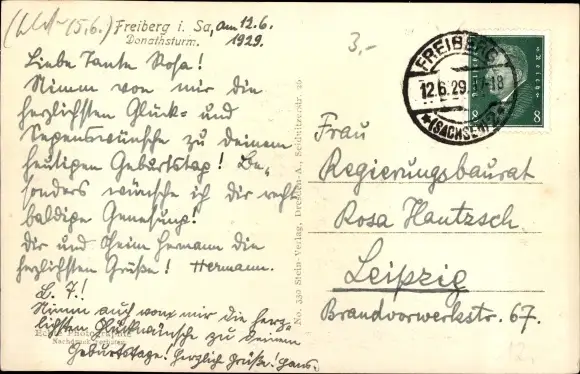 Freiberg i. Sa, am 12.6.
Donathsturm. 1929.
Liebe Tante Rosa!
Nimm von mir die
herzlichsten Glück- und
Segenswünsche zu deinem
heutigen Geburtstag! Be-
sonders wünsche ich dir recht
baldige Genesung!
Dir und Heim Hermann die
herzlichsten Grüße! Hermann.
L. T.!
Nimm auch von mir die herz-
lichsten Glückwünsche zu Deinem
Geburtstage! Herzlich Grüße! Hans.
Echte Photographie
Nachdruck verboten
No. 550 Stein-Verlag, Dresden-A., Seidnitzerstr. 26
3,-
FREIBERG
12.6.29. 17-18
*(SACHSEN)2
8 8
Frau
Regierungsbaurat
Rosa Hantzsch.
Leipzig
Brandvorwerkstr. 67.
12.